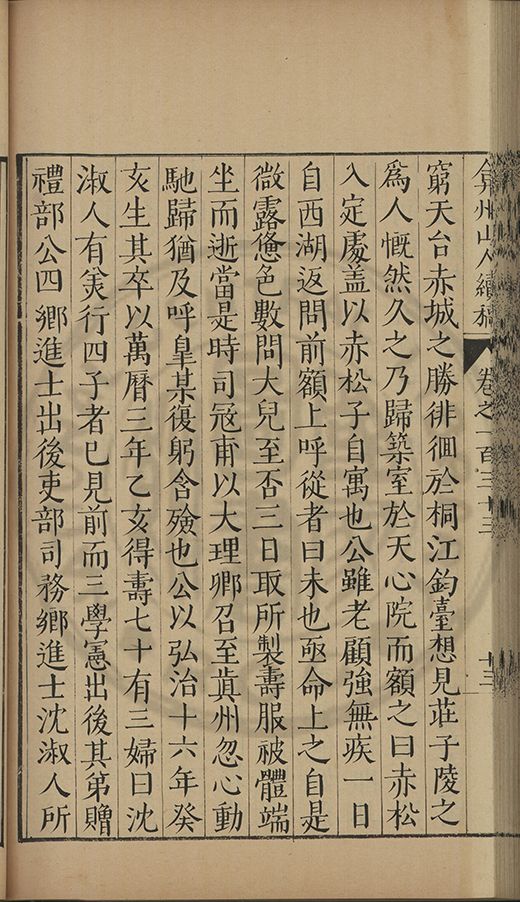 弇州山人續稿 卷之一百三十三 十三
窮天台赤城之勝徘徊於桐江釣臺想見莊子陵之
為人慨然久之乃歸築室於天心院而額之曰赤松
入定處盖以赤松子自寓也公雖老顧強無疾一日
自西湖返問前額上呼從者曰未也亟命上之自是
微露憊色數問大兒至否三日取所製壽服被體端
坐而逝當是時司寇甫以大理卿召至真州忽心動
馳歸猶及呼臯某復躬含殮也公以弘治十六年癸
亥生其卒以萬曆三年乙亥得壽七十有三婦曰沈
淑人有美行四子者巳見前而三學憲出後其弟贈
禮部公四鄉進士出後吏部司務鄉進士沈淑人所